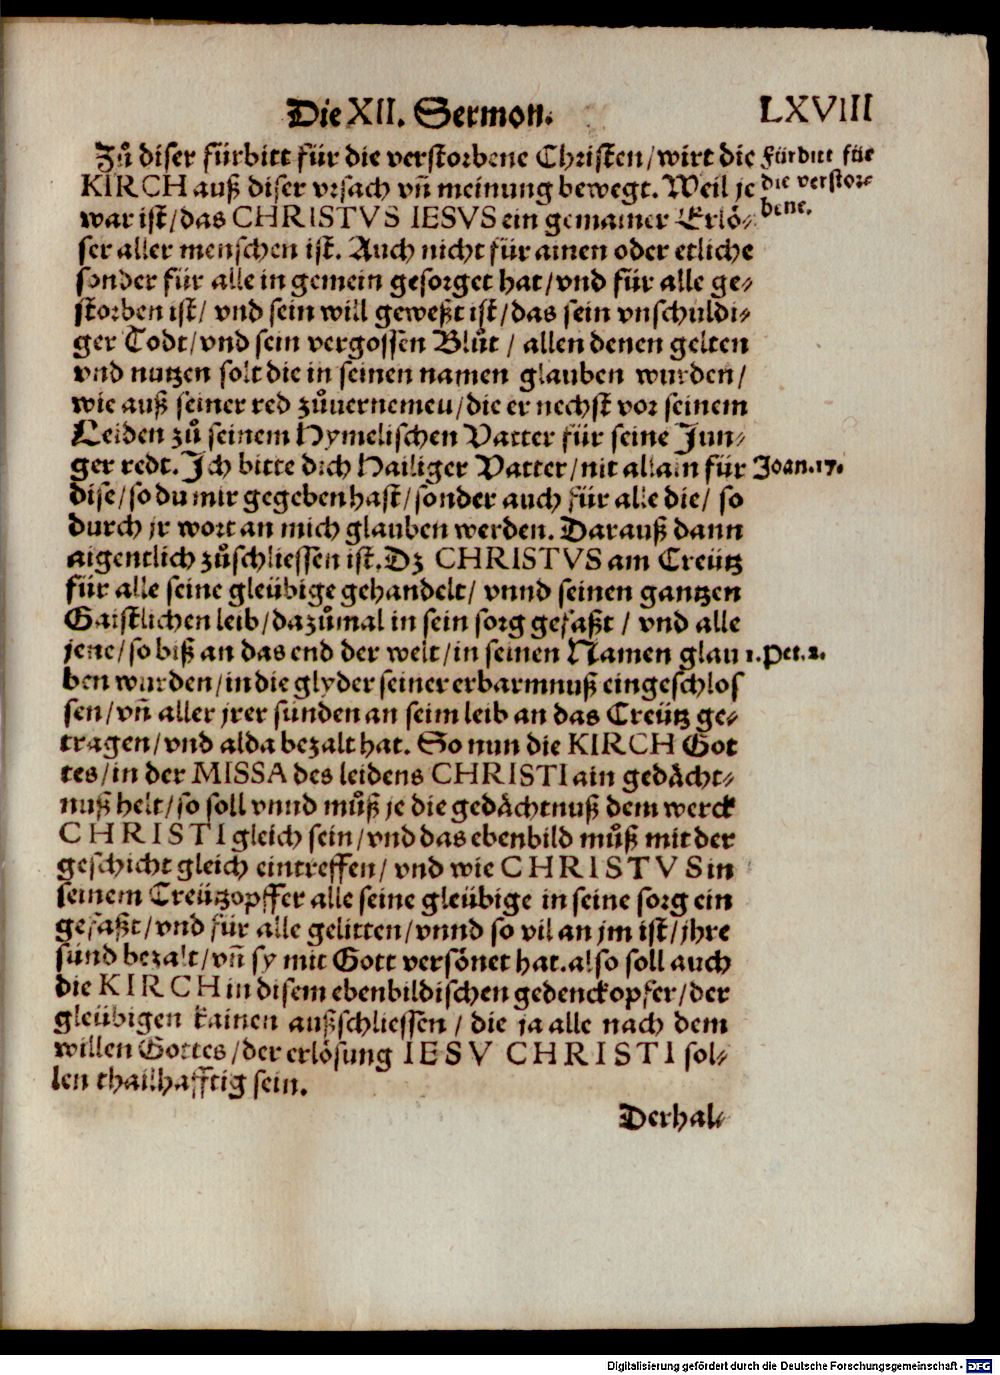 Die XII. Sermon. LXVIII
Zů diser fürbitt für die verstorbene Christen/wirt die
KIRCH auß diser vrsach vn̄ meinung bewegt. Weil je
war ist/das CHRISTVS IESVS ein gemainer Erlö-
ser aller menschen ist. Auch nicht für ainen oder etliche
sonder für alle in gemein gesorget hat/vnd für alle ge-
storben ist/ vnd sein will geweßt ist/das sein vnschuldi-
ger Todt/vnd sein vergossen Blůt / allen denen gelten
vnd nutzen solt die in seinen namen glauben wurden/
wie auß seiner red zůuernemen/die er nechst vor seinem
Leiden zů seinem Hymelischen Vatter für seine Jun-
ger redt. Ich bitte dich Hailiger Vatter/nit allain für
dise/so du mir gegeben hast/sonder auch für alle die/ so
durch jr wort an mich glauben werden. Darauß dann
aigentlich zůschliessen ist. Dz CHRISTVS am Creütz
für alle seine gleübige gehandelt/ vnnd seinen gantzen
Gaistlichen leib/dazůmal in sein sorg gefaßt / vnd alle
jene/so biß an das end der welt/in seinen Namen glau
ben wurden/in die glyder seiner erbarmnuß eingeschlos
sen/vn̄ aller jrer sünden an seim leib an das Creütz ge-
tragen/vnd alda bezalt hat. So nun die KIRCH Got
tes/in der MISSA des leidens CHRISTI ain gedächt-
nuß helt/so soll vnnd můß je die gedächtnuß dem werck
CHRISTI gleich sein/vnd das ebenbild můß mit der
geschicht gleich eintreffen/ vnd wie CHRISTVS in
seinem Creützopffer alle seine gleübige in seine sorg ein
gefaßt/vnd für alle gelitten/vnnd so vil an jm ist/jhre
sünd bezalt/vn̄ sy mit Gott versönet hat. also soll auch
die KIRCH in disem ebenbildischen gedenckopfer/der
gleübigen kainen außschliessen / die ja alle nach dem
willen Gottes/der erlösung IESV CHRISTI sol-
len thailhafftig sein.
Derhal-
Fürbitt für
die verstor-
bene.
Joan.17.
1.Pet.2.
Digitalisierung gefördert durch die Deutsche Forschungsgemeinschaft - DFG